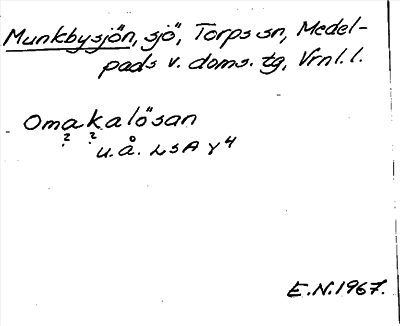 Munkbysjön, sjö, Torps sn, Medel-
pads v. doms. tg, Vrnl. l.
Omakalösan
? ?
u.å. LSA Y4
E.N. 1967.